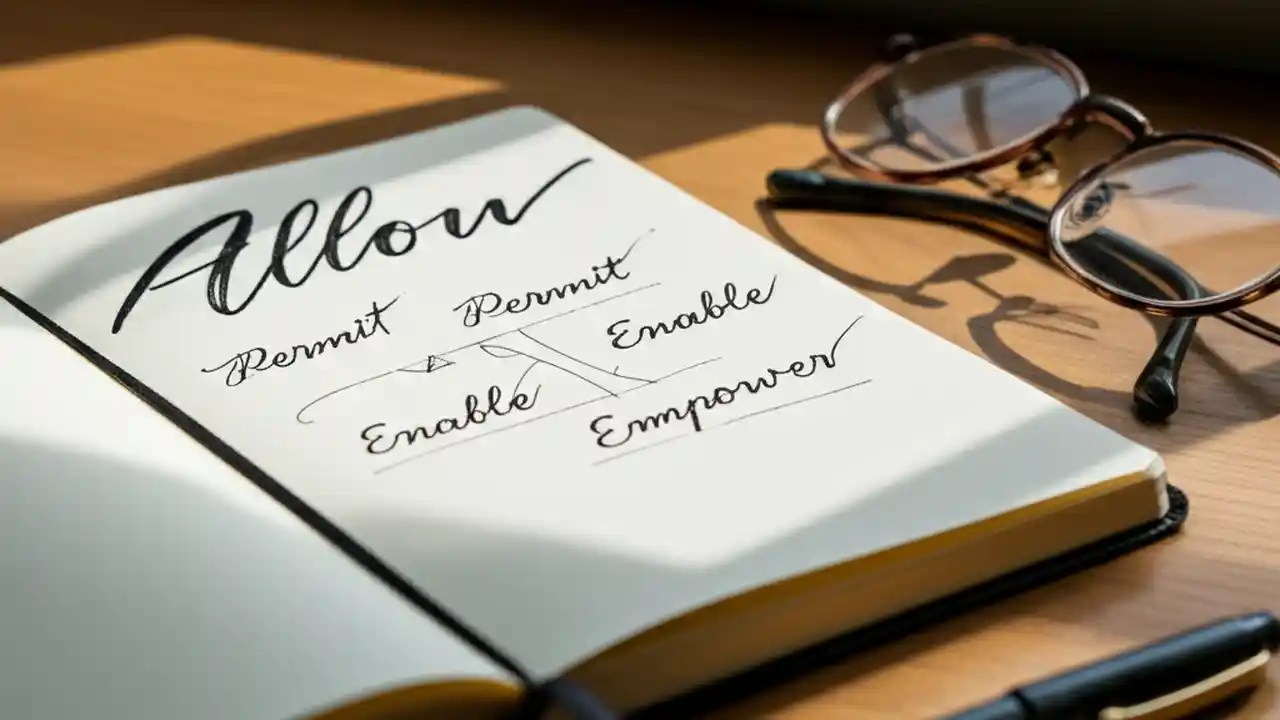 Allow
Permit Permit
Enable Enable
Empower